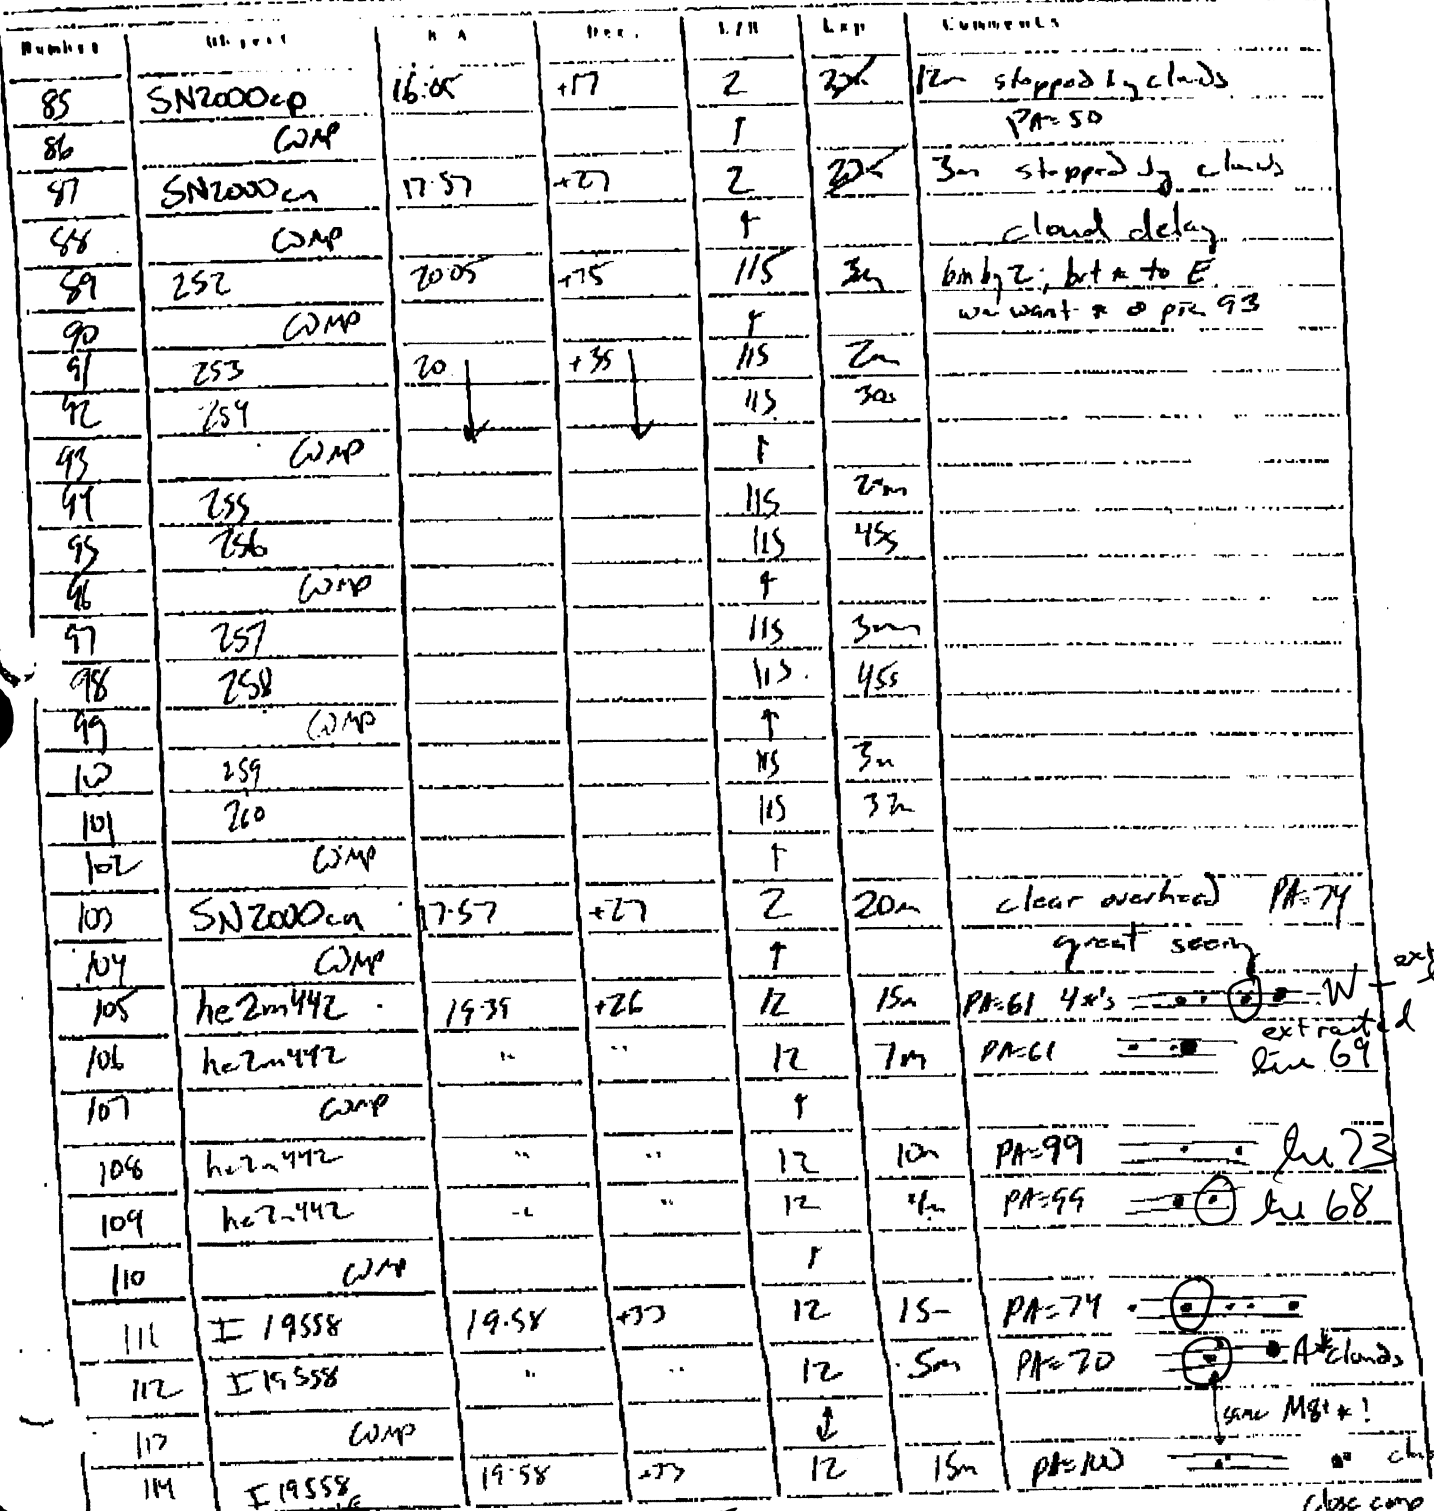 Number Object R A Dec. Exp Comments
85 SN2000cp 16:05 +17 2 12m stopped by clouds
86 COMP ↑ PA=50
87 SN2000cn 17:57 +27 2 3m stopped by clouds
88 COMP ↑ cloud delay
89 252 20:05 +35 115 3m bin by 2; brt * to E
90 COMP ↑ we want * @ pix 93
91 253 20 +35 115 2m
92 254 115 30s
93 COMP ↑
94 255 115
95 256 115 45s
96 COMP ↑
97 257 115 3m
98 258 115 45s
99 COMP ↑
100 259 115 3m
101 260 115
102 COMP ↑
103 SN2000cn 17:57 +27 2 20m clear overhead PA=74
104 COMP ↑ great seeing
105 he2m442 19:39 +26 12 15m PA=61 4*'s W
extracted
106 he2m442 " " 12 7m PA=61 line 69
107 COMP ↑
108 he2m442 " " 12 10m PA=99 line 73
109 he2m442 " " 12 PA=99 line 68
110 COMP ↑
111 I 19558 19:58 +33 12 15m PA=74
112 I 19558 " " 12 5m PA=70 A* clouds
113 COMP ↕ same M8+ *!
114 I 19558 19:58 +33 12 15m PA=100
close comp